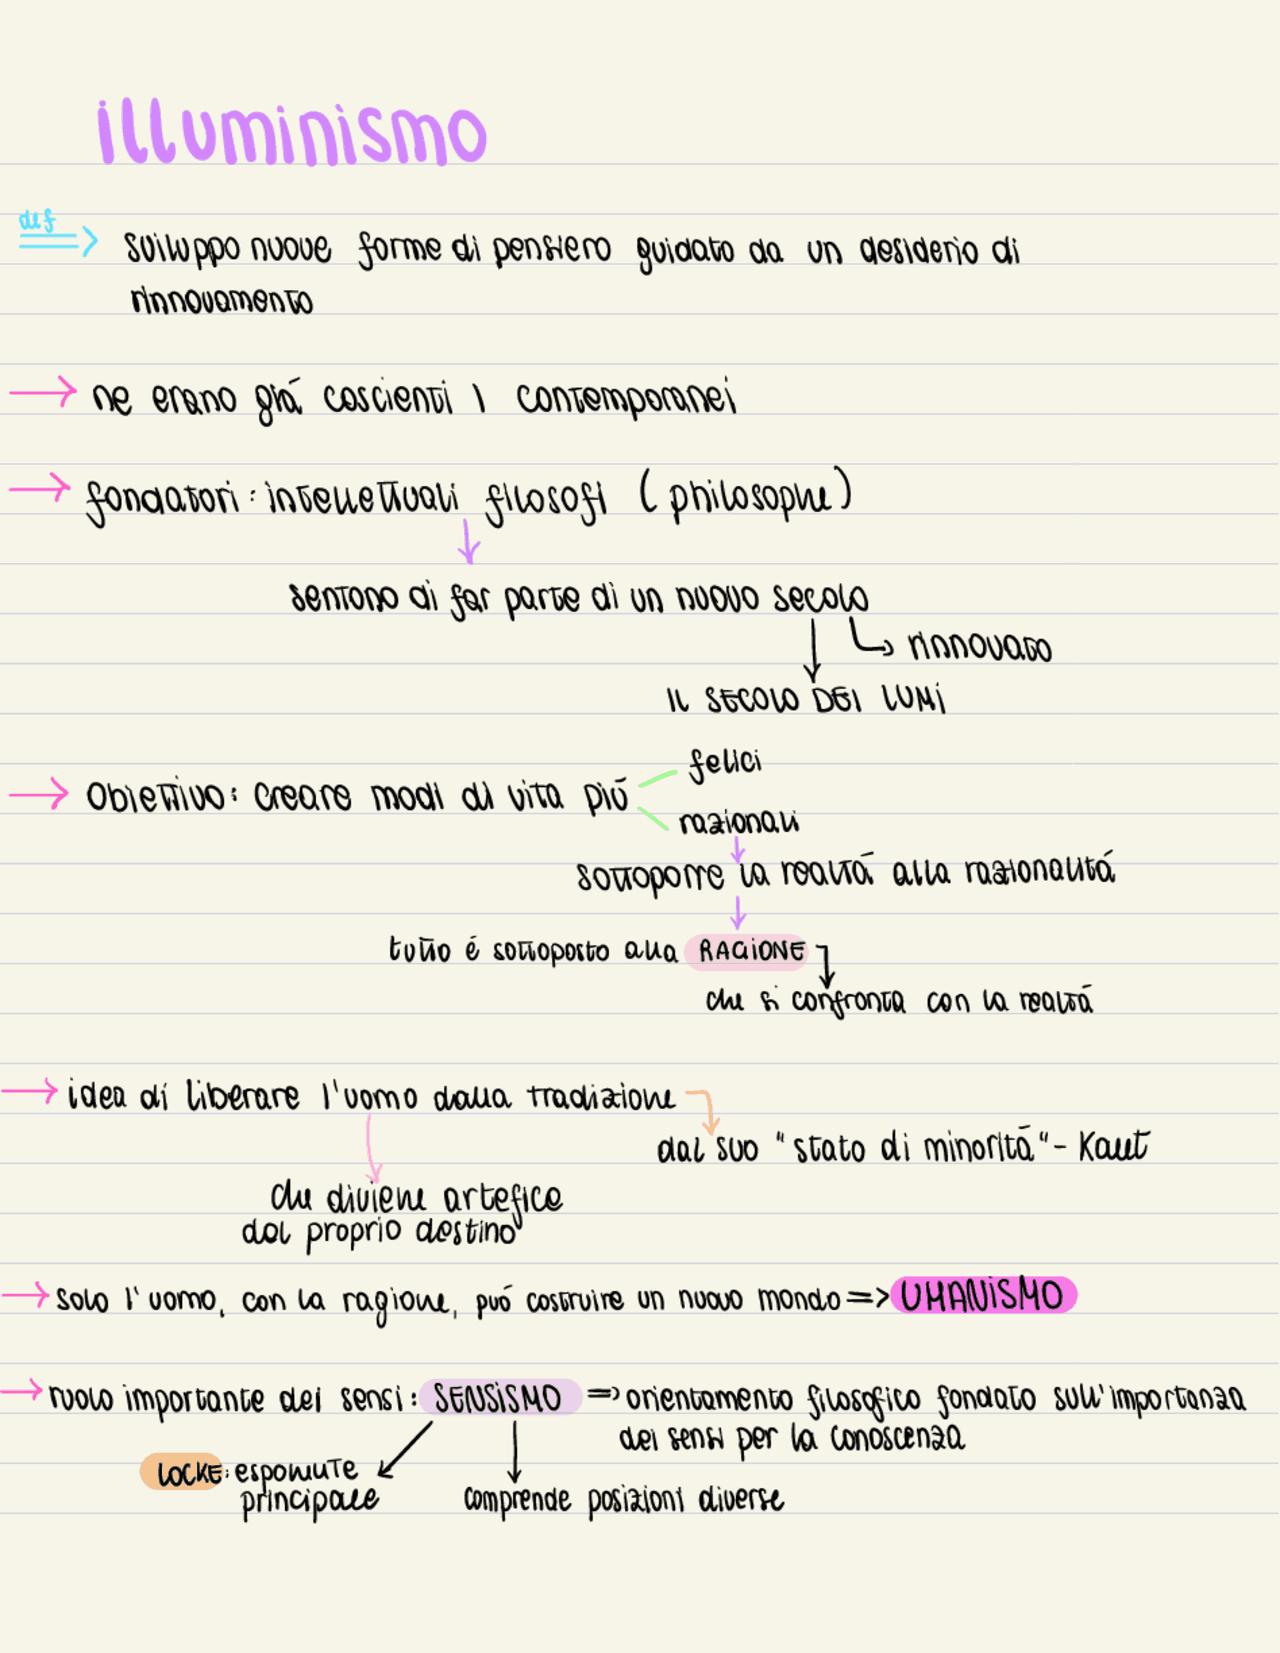 illuminismo
def
sviluppo nuove forme di pensiero guidato da un desiderio di
rinnovamento
ne erano giá coscienti i contemporanei
fondatori: intellettuali filosofi (philosophe)
sentono di far parte di un nuovo secolo
rinnovato
IL SECOLO DEI LUMI
felici
Obiettivo: creare modi di vita piú
razionali
sottoporre la realtá alla razionalitá
tutto é sottoposto alla RAGIONE
che si confronta con la realtá
idea di liberare l'uomo dalla tradizione
dal suo "stato di minoritá" - Kant
che diviene artefice
del proprio destino
solo l'uomo, con la ragione, puó costruire un nuovo mondo => UMANISMO
ruolo importante dei sensi: SENSISMO => orientamento filosofico fondato sull'importanza
dei sensi per la conoscenza
LOCKE: esponente
principale
comprende posizioni diverse